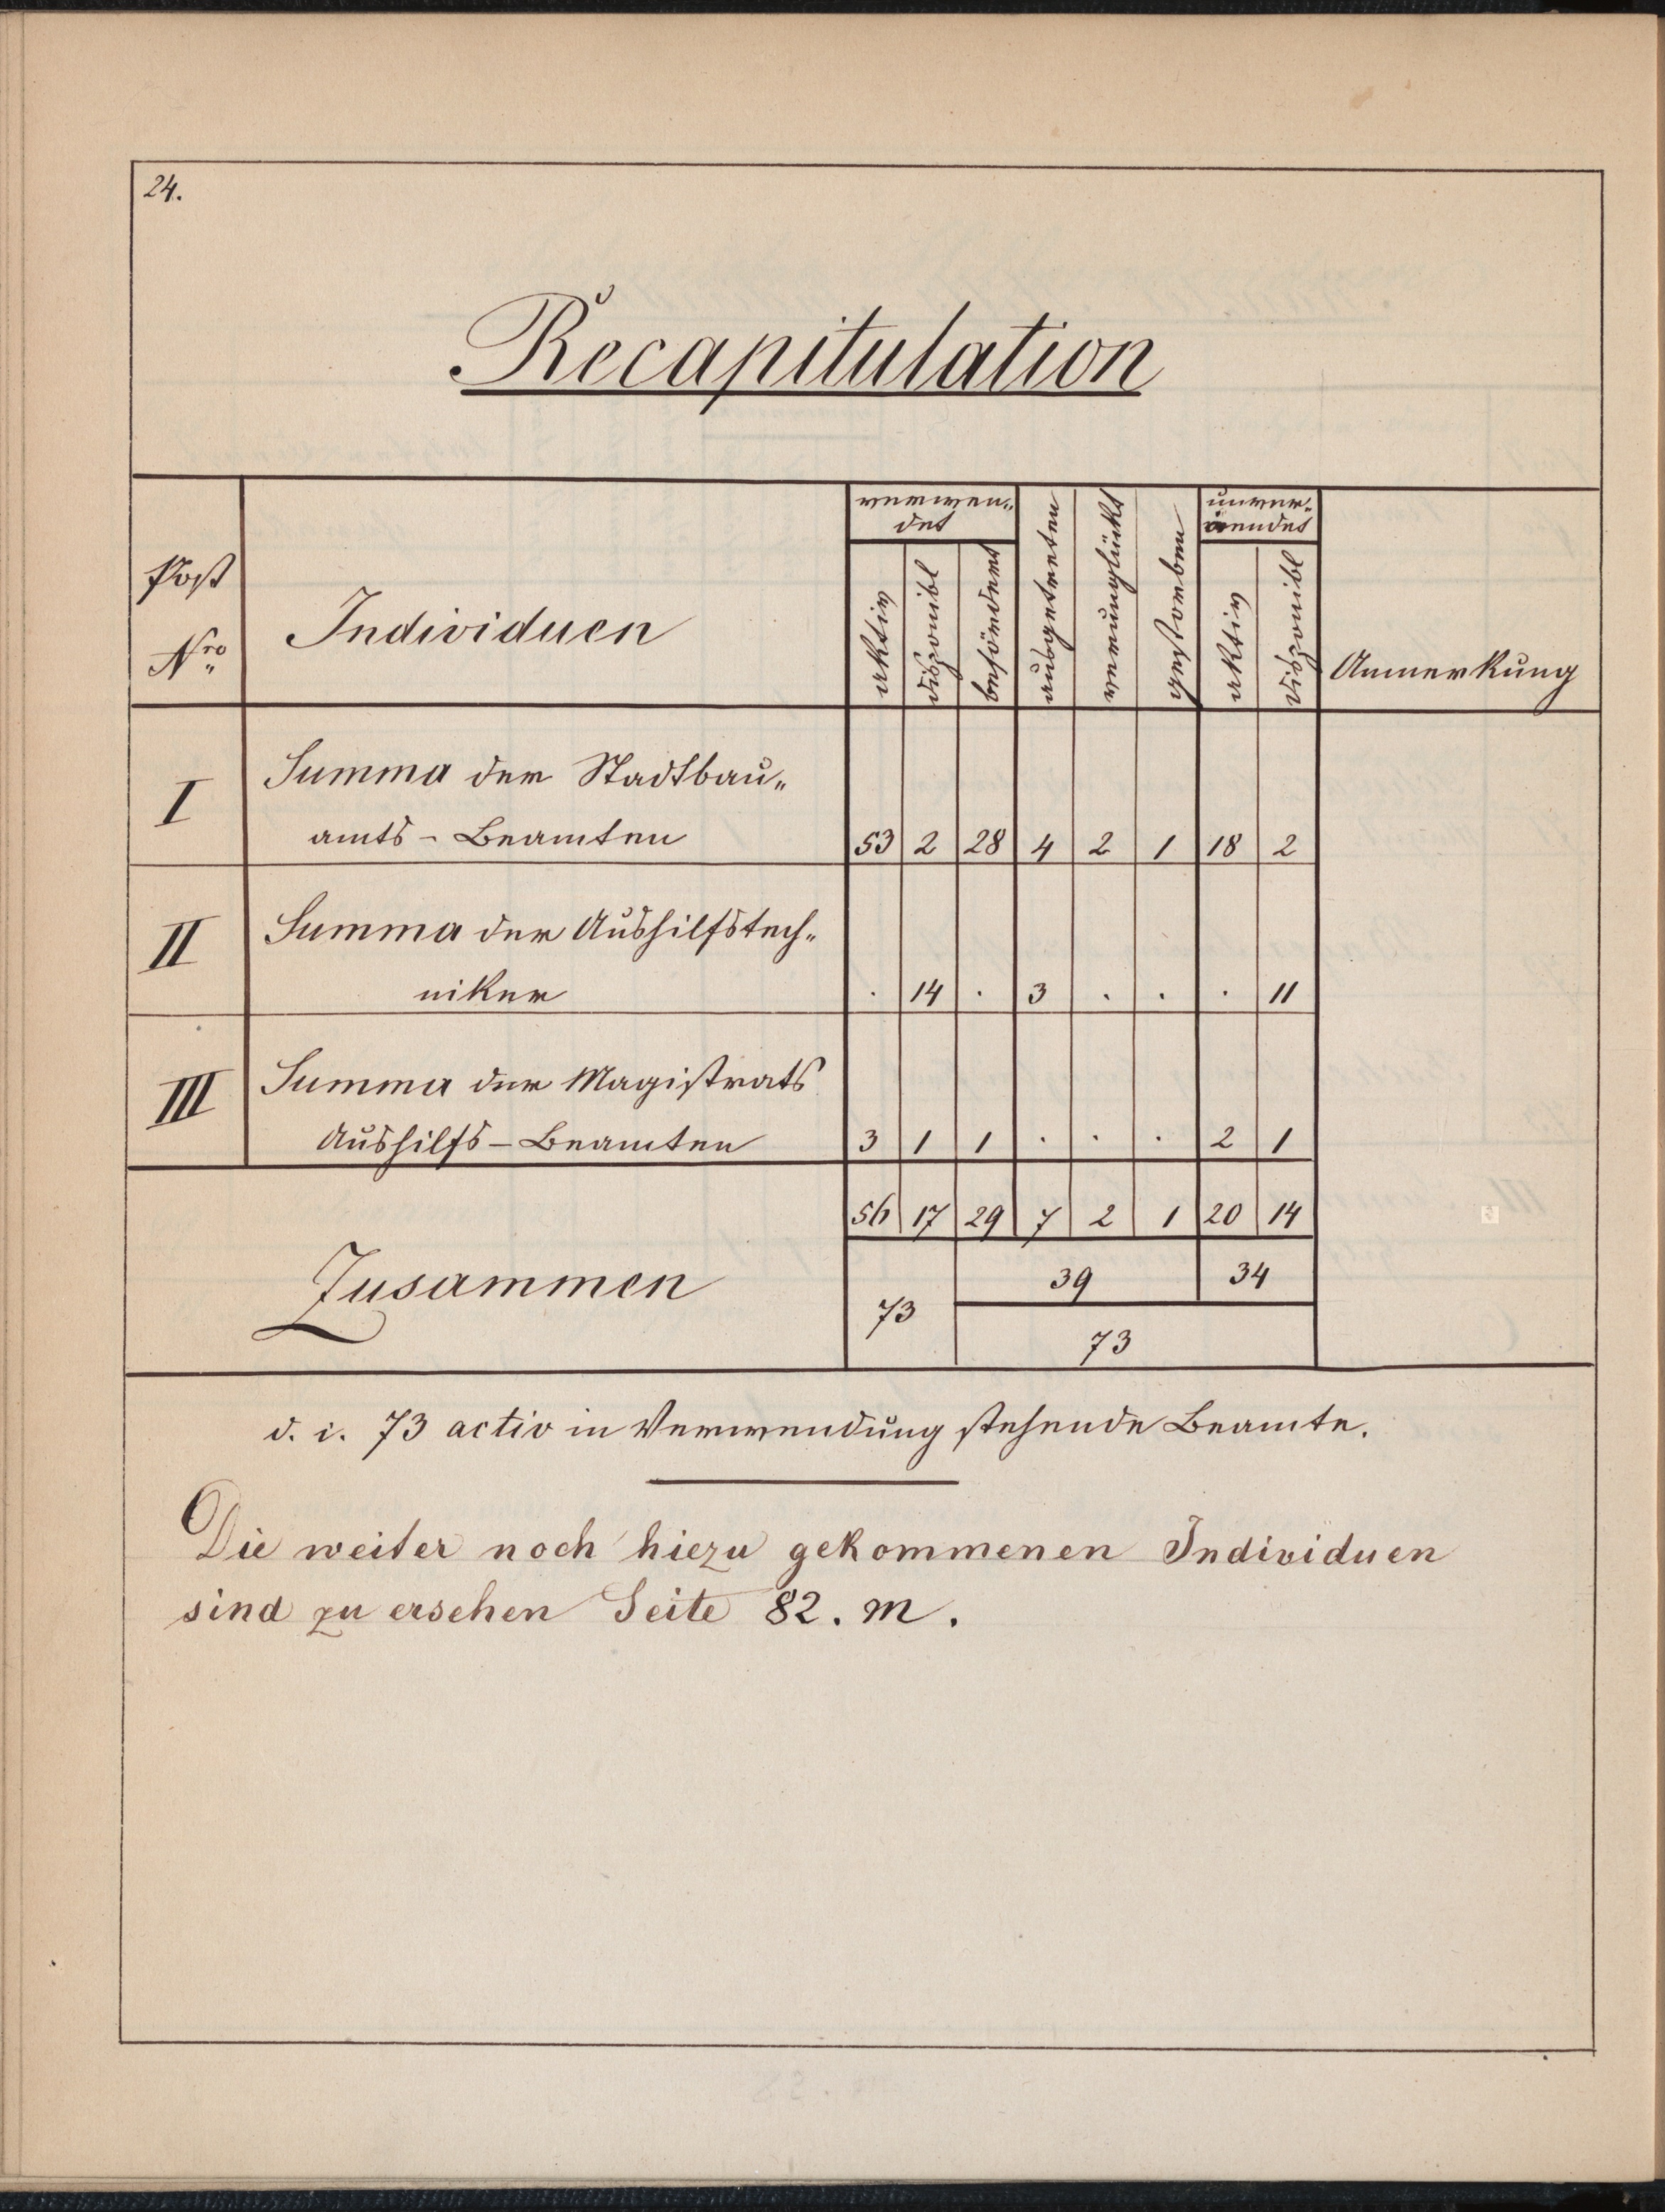 24.
Recapitulation
Post
Nro
Individuen
verwen„
det
aktiv
disponibl
befördert
ausgetreten
verunglückt
gestorben
unver„
wendet
aktiv
disponibl
Anmerkung
I
Summa der Stadtbau„
amts - Beamten
53 2 28 4 2 1 18 2
II
Summa der Aushilfstech„
niker
. 14 . 3 . . . 11
III
Summa der Magistrats
Aushilfs - Beamten
3 1 1 . . . 2 1
56 17 29 7 2 1 20 14
Zusammen
39 34
73
73
d. i. 73 activ in Verwendung stehende Beamte.
Die weiter noch hiezu gekommenen Individuen
sind zu ersehen Seite 82. m.